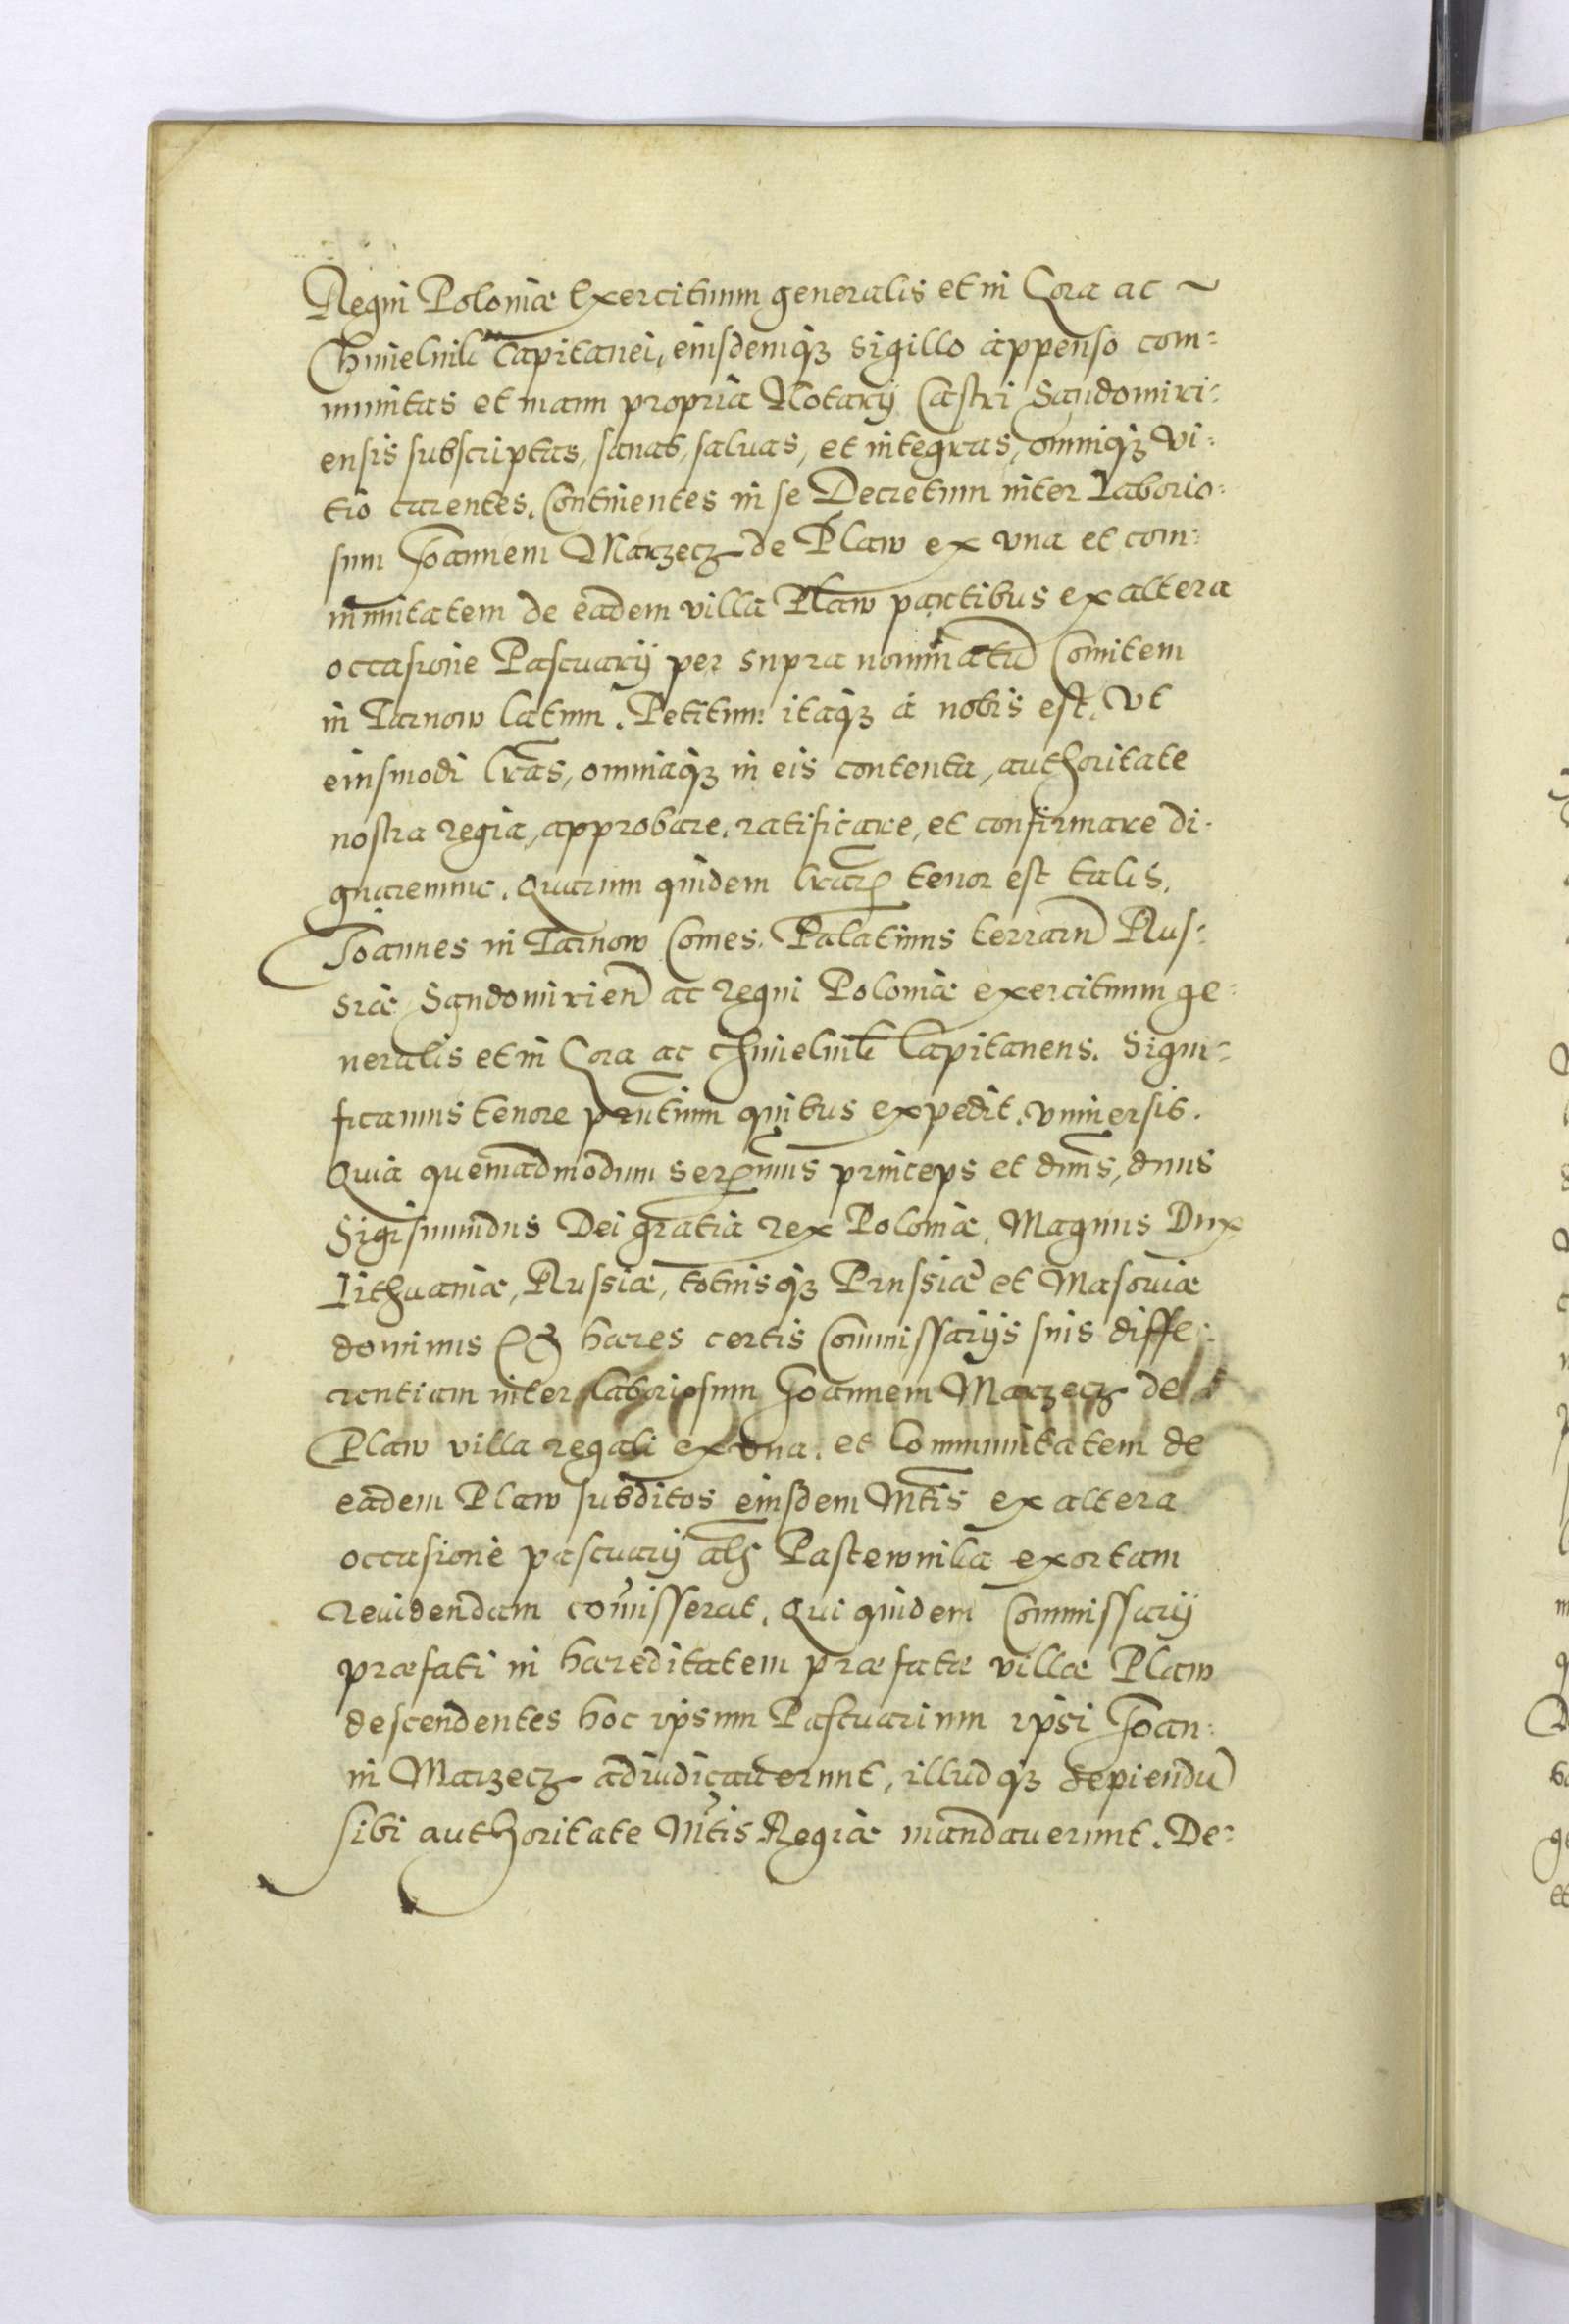 Regni Poloniæ Exercituum generalis et in Zora ac ~
Chmielnik Capitanei, eiusdemq3 sigillo appenso com=
munitas et manu propria Notarij Castri Sandomiri=
ensis subscriptas, sanas, saluas, et integras, omniq3 vi=
tio carentes. Continentes in se Decretum inter Laborio=
sum Joannem Marzecz de Plaw ex vna et com=
munitatem de eadem villa Plaw partibus ex altera
occasione Pascuarij per supra nominatũ Comitem
in Tarnow latum. Petitum itaq3 à nobis est, vt
eiusmodi lr̃as, omniaq3 in eis contenta, authoritate
nostra regia, approbare, ratificare, et confirmare di=
gnaremur. Quarum quidem lrarꝝ tenor est talis.
Joannes in Tarnow Comes. Palatinus terrarũ Rus=
siæ Sandomirieñ ac regni Poloniæ exercituum ge=
neralis et in Zora ac Chmielnik Capitaneus. Signi=
ficamus tenore pñtium quibus expedit. vniuersis.
Quia quemadmodum Serꝫmus princeps et dñs, dnus
Sigismundus Dei gratia rex Poloniæ, Magnus Dux
Lithuaniæ, Russiæ, totiusq3 Prussiæ et Masouiæ
dominus & hæres certis Commissarijs suis diffe=
rentiam inter laboriosum Joannem Marzecz de
Plaw villa regali ex vna. et Communitatem de
eadem Plaw subditos eiusdem Mtĩs ex altera
occasione pascuarij als Pastewnika exortam
reuidendam com̃isserat. Qui quidem Commissarij
præfati in hæreditatem præfatæ villæ Plaw
descendentes hoc ipsum Pastuarium ipsi Joan=
ni Marzecz adiudicauerunt, illudq3 sepiendũ
sibi authoritate Mtis Regiæ mandauerunt. De=